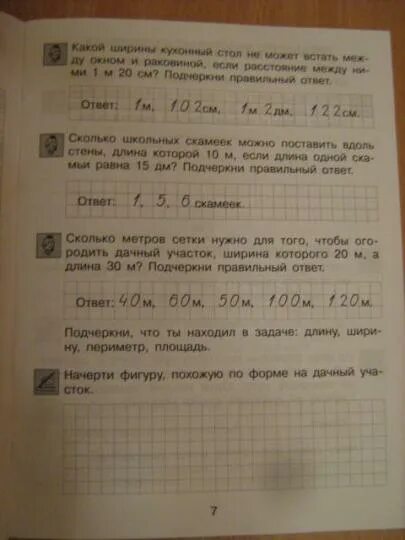 Какой ширины кухонный стол не может встать меж-
ду окном и раковиной, если расстояние между ни-
ми 1 м 20 см? Подчеркни правильный ответ.
Ответ: 1м, 102см, 1м 2дм, 122см.
Сколько школьных скамеек можно поставить вдоль
стены, длина которой 10 м, если длина одной ска-
мьи равна 15 дм? Подчеркни правильный ответ.
Ответ: 1, 5, 6 скамеек.
Сколько метров сетки нужно для того, чтобы ого-
родить дачный участок, ширина которого 20 м, а
длина 30 м? Подчеркни правильный ответ.
Ответ: 40м, 60м, 50м, 100м, 120м.
Подчеркни, что ты находил в задаче: длину, шири-
ну, периметр, площадь.
Начерти фигуру, похожую по форме на дачный уча-
сток.
7